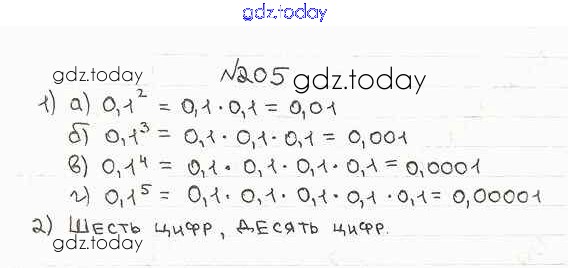 gdz.today
№205
gdz.today
gdz.today
1) а) 0,1² = 0,1 · 0,1 = 0,01
б) 0,1³ = 0,1 · 0,1 · 0,1 = 0,001
в) 0,1⁴ = 0,1 · 0,1 · 0,1 · 0,1 = 0,0001
г) 0,1⁵ = 0,1 · 0,1 · 0,1 · 0,1 · 0,1 = 0,00001
2) Шесть цифр, десять цифр.
gdz.today